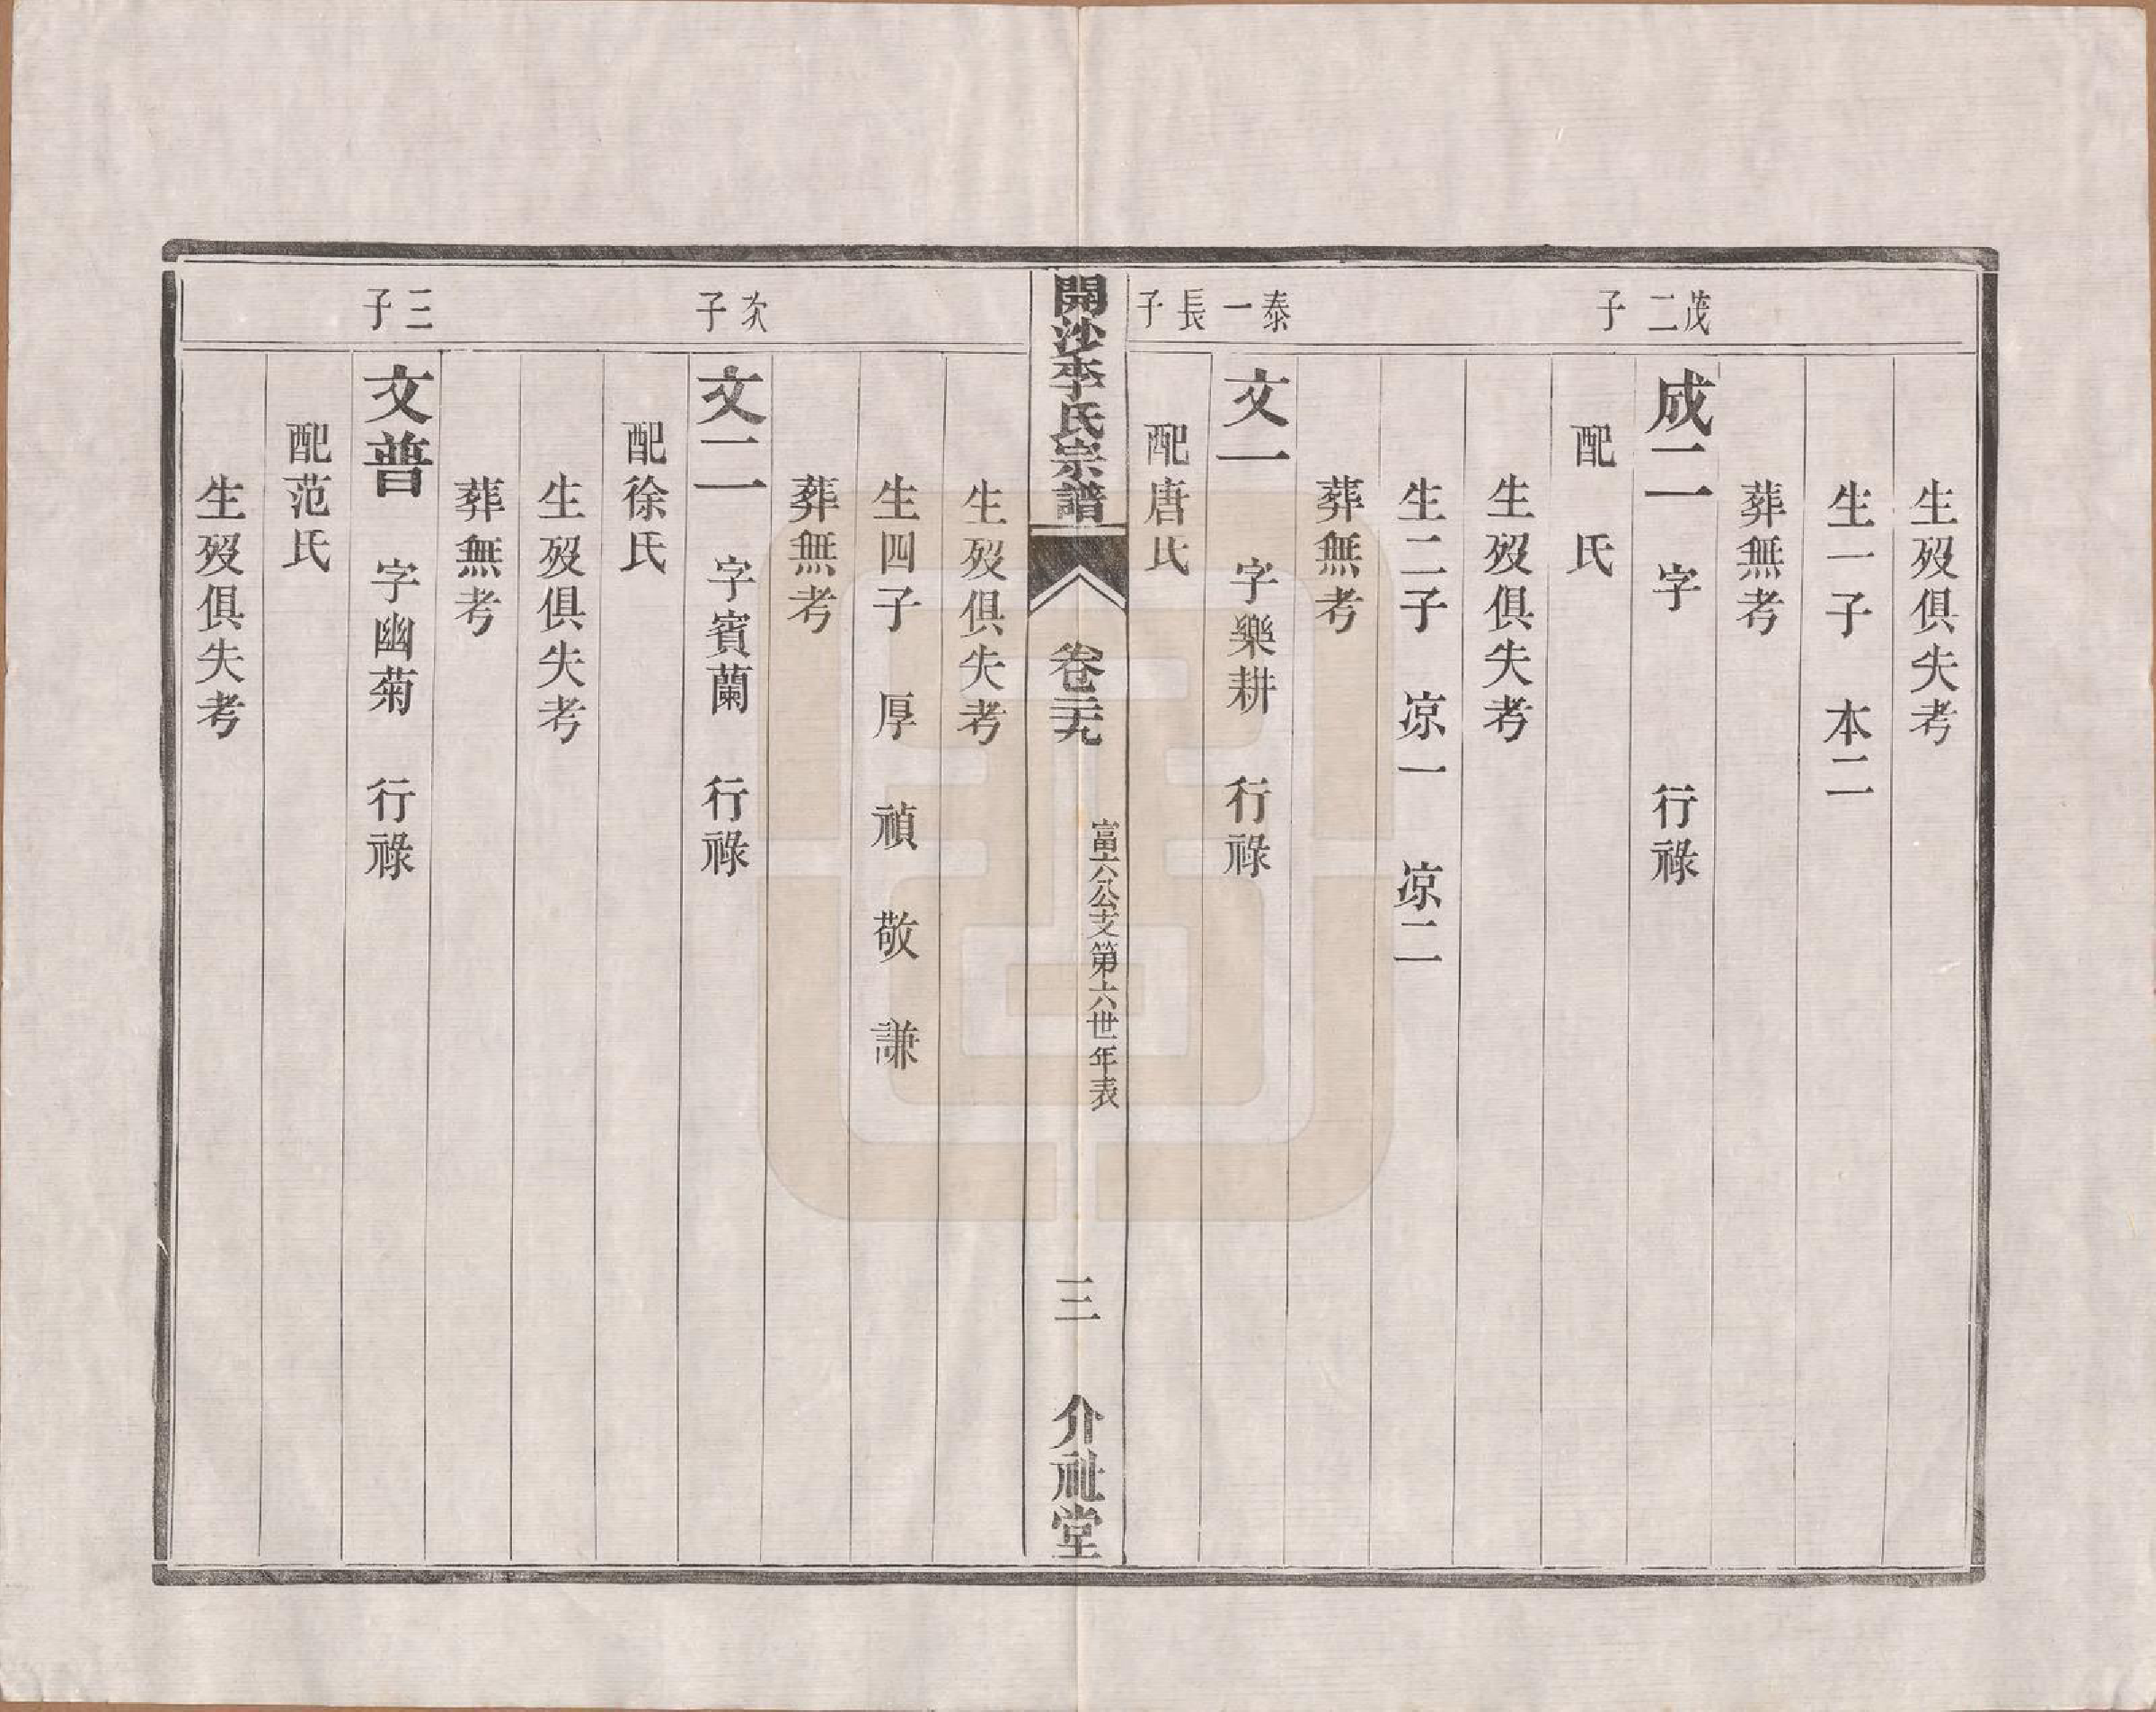 生歿俱失考
生一子 本二
葬無考
茂二子
成二 字 行祿
配 氏
生歿俱失考
生二子 凉一 凉二
葬無考
泰一長子
文一 字樂耕 行祿
配唐氏
開沙李氏宗譜
卷二十九
富六公支第六世年表
三
介祉堂
生歿俱失考
生四子 厚 禎 敬 謙
葬無考
次子
文二 字賓蘭 行祿
配徐氏
生歿俱失考
葬無考
三子
文普 字幽菊 行祿
配范氏
生歿俱失考